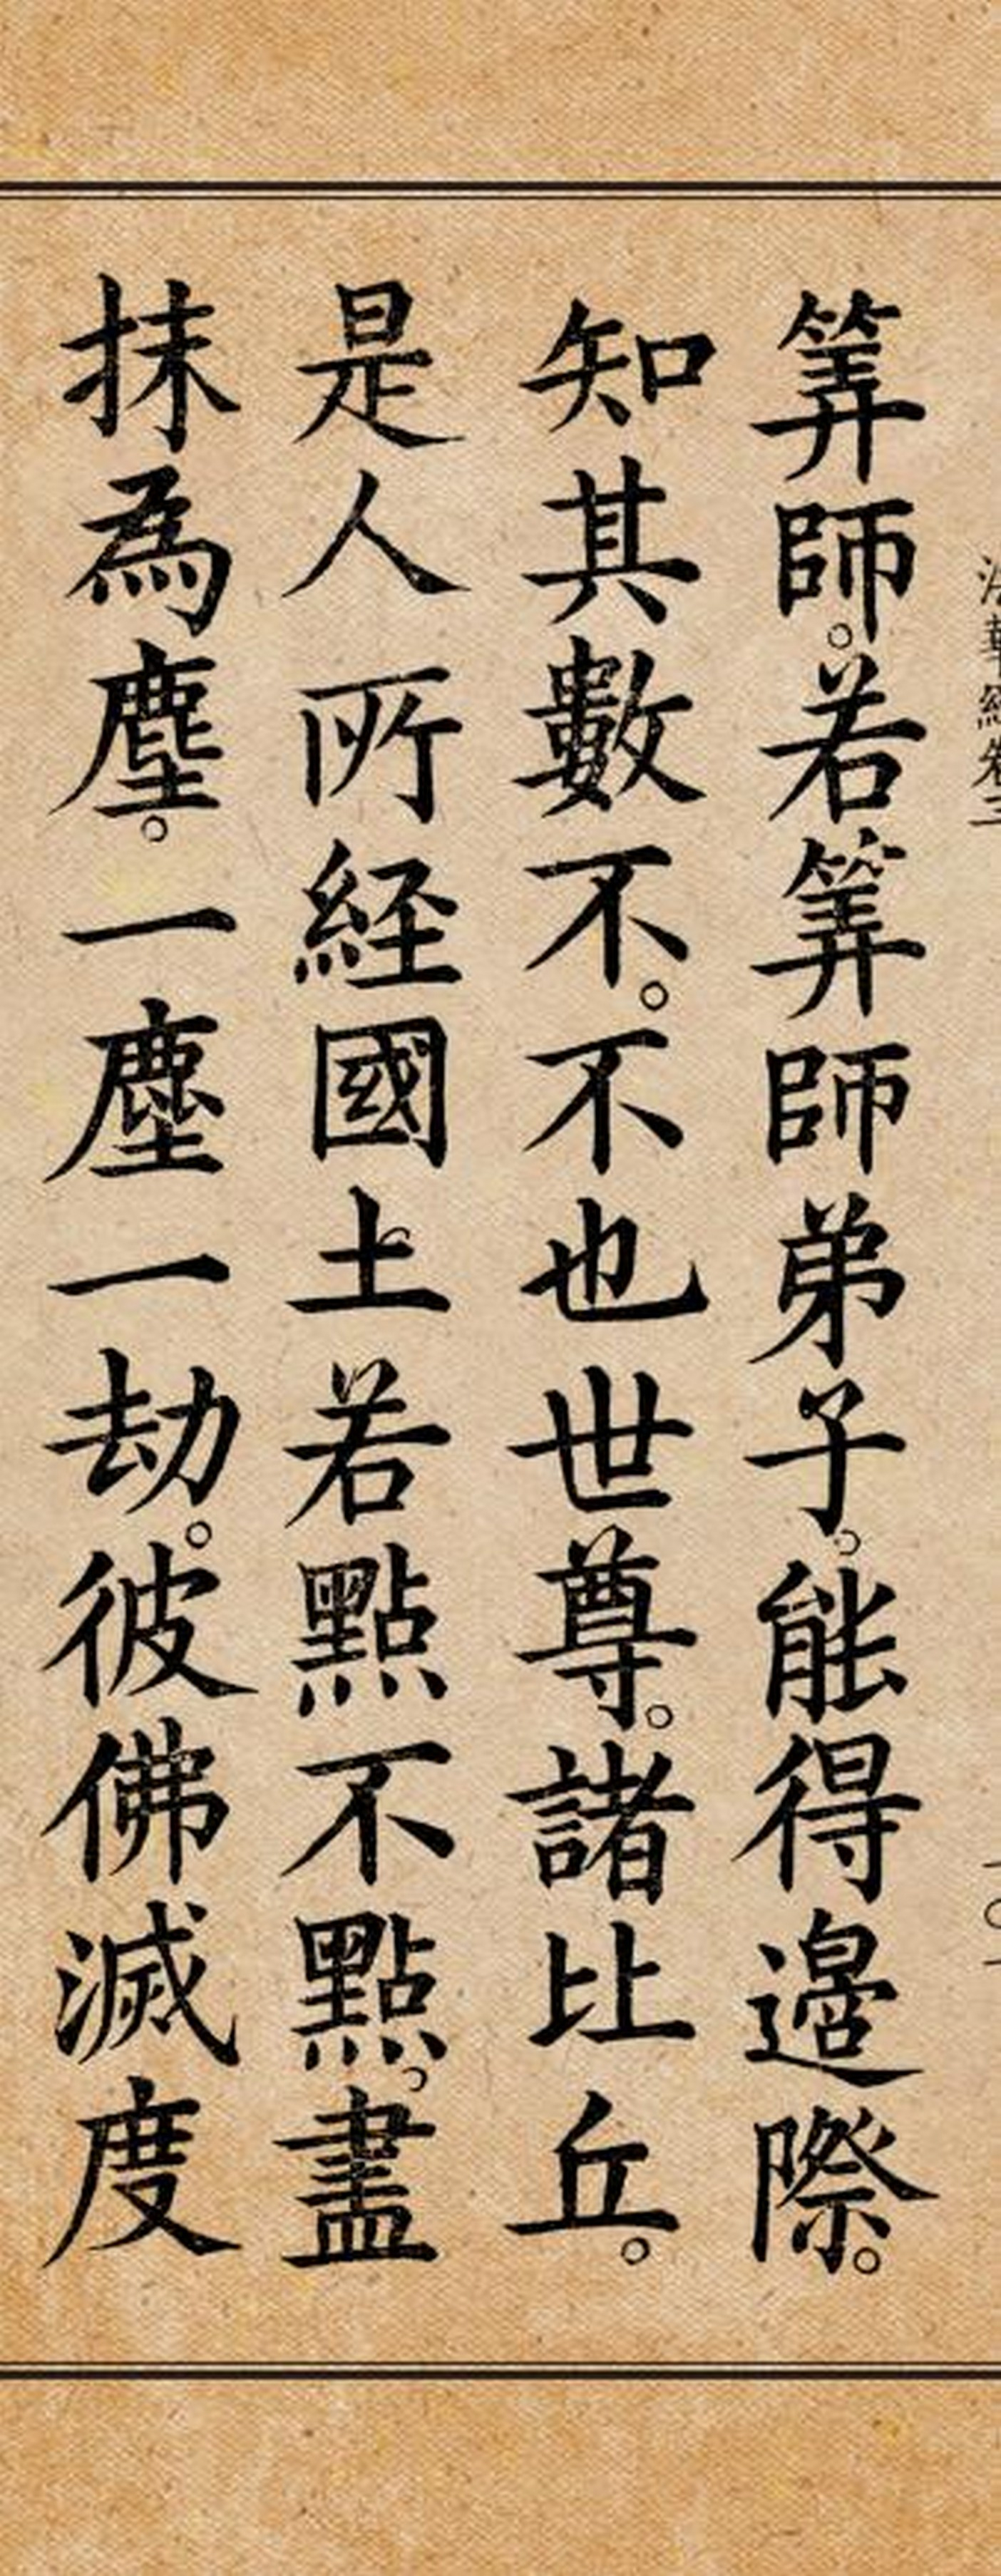 法華經卷三
一〇一
筭師。若筭師弟子。能得邊際。
知其數不。不也世尊。諸比丘。
是人所経國土若點不點。盡
抹為塵。一塵一劫。彼佛滅度